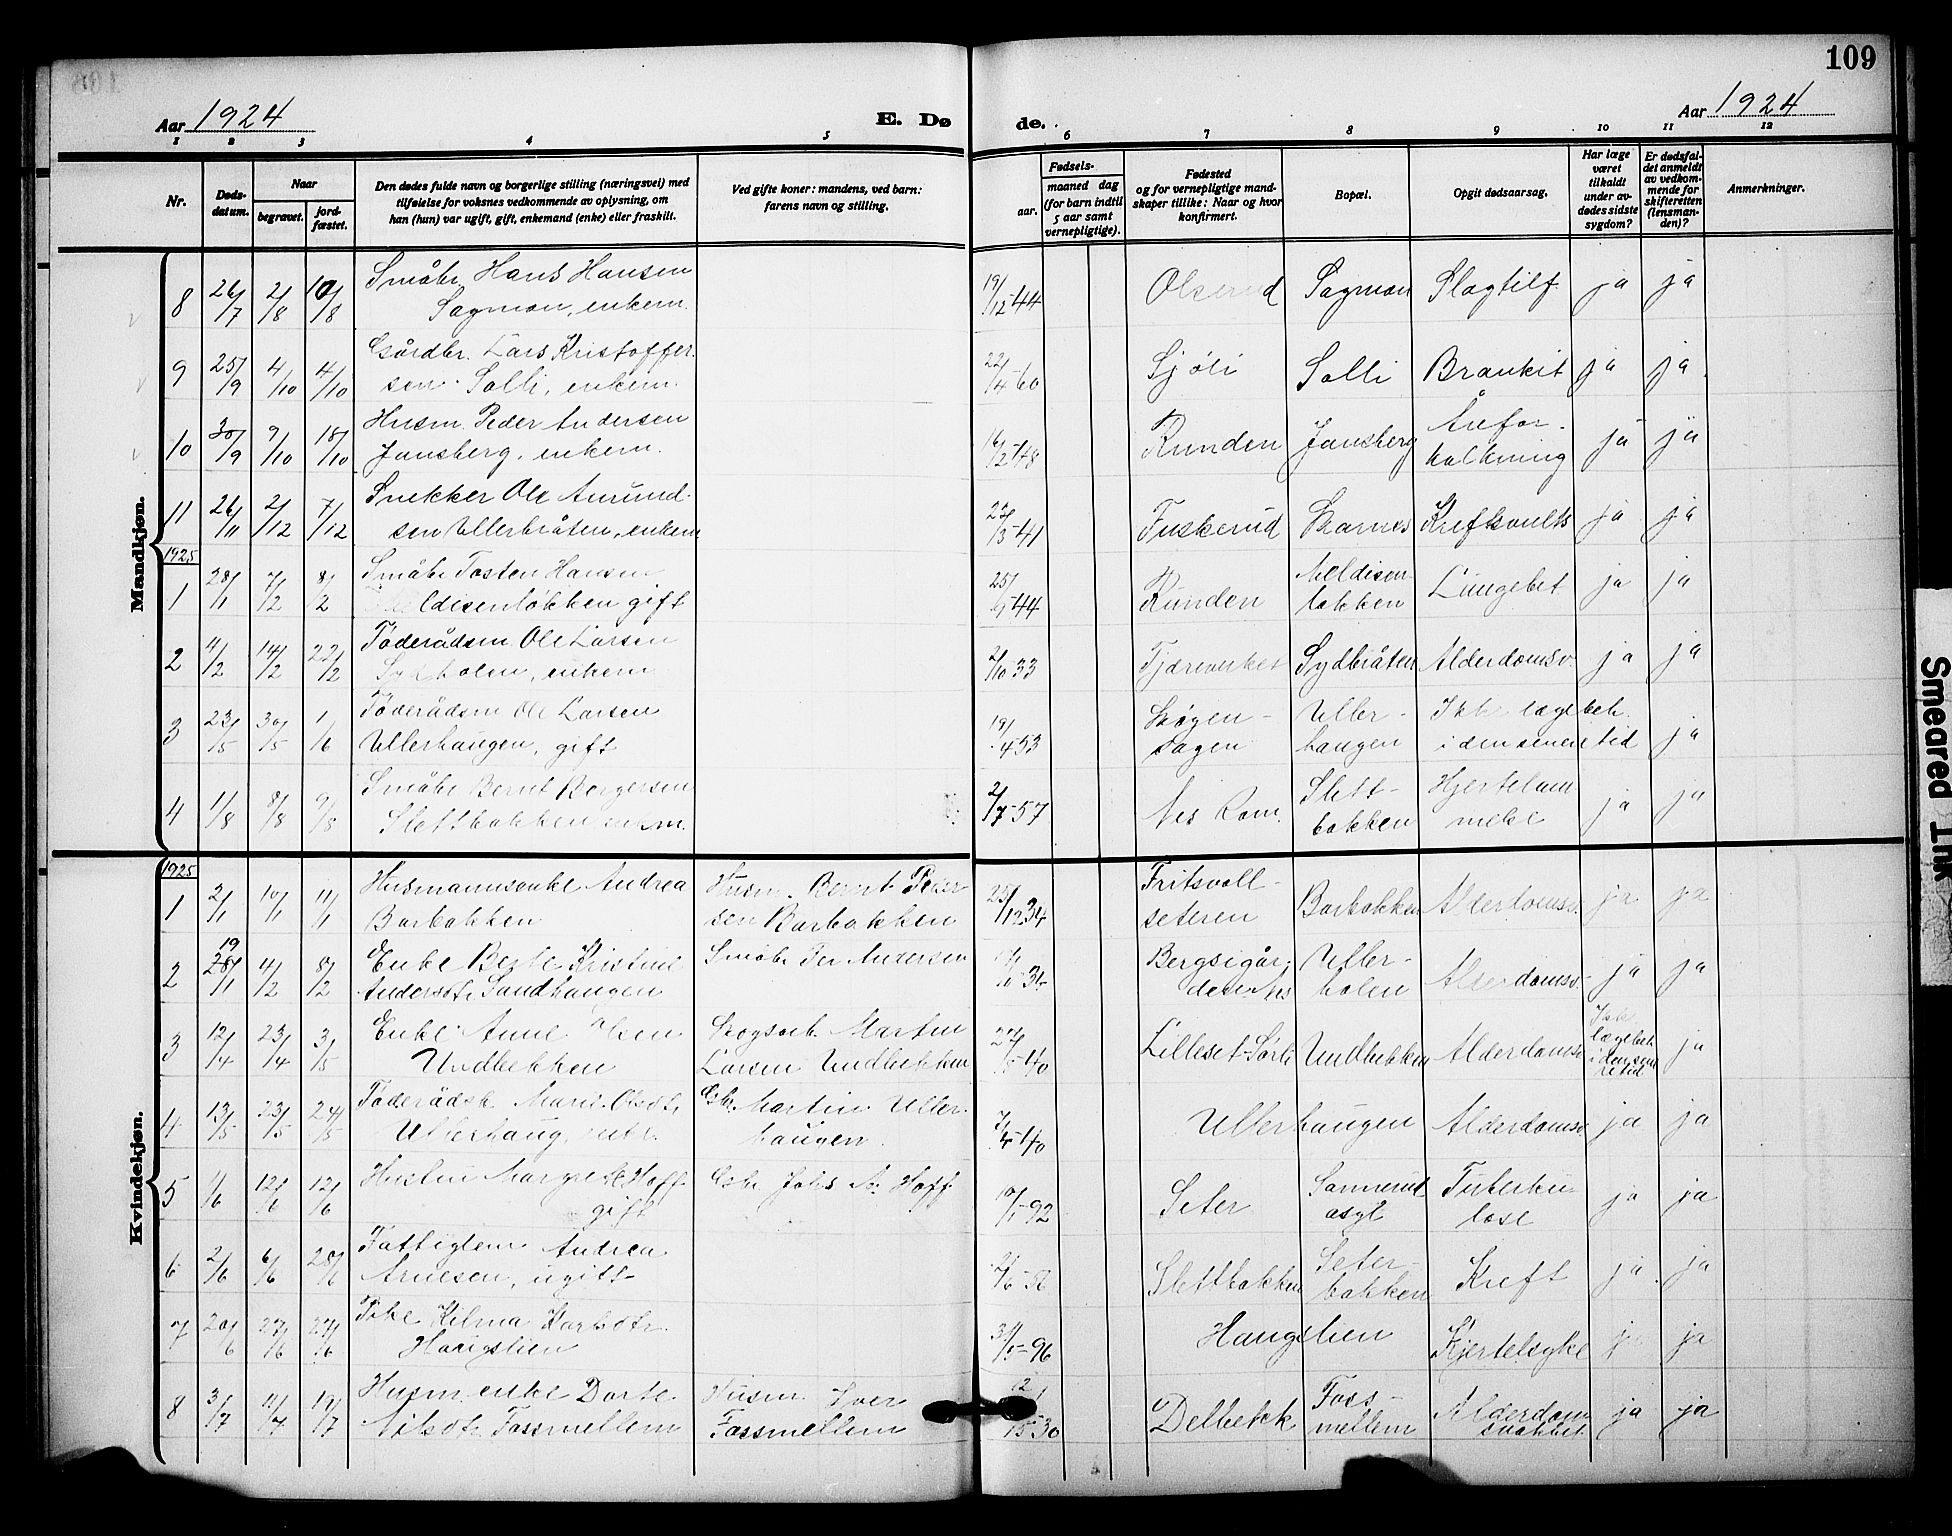 109
Aar 1924
E. Dø
de.
Aar 1924
1 2 3 4 5 6 7 8 9 10 11 12
Nr.
Døds-
datum.
Naar
begravet.
jord-
fæstet.
Den dødes fulde navn og borgerlige stilling (næringsvei) med
tilføielse for voksnes vedkommende av oplysning, om
han (hun) var ugift, gift, enkemand (enke) eller fraskilt.
Ved gifte koner: mandens, ved barn:
farens navn og stilling.
Fødsels-
aar.
maaned dag
(for barn indtil
5 aar samt
vernepligtige).
Fødested
og for vernepligtige mand-
skaper tillike: Naar og hvor
konfirmert.
Bopæl.
Opgit dødsaarsag.
Har læge
været
tilkaldt
under av-
dødes sidste
sygdom?
Er dødsfal-
det anmeldt
av vedkom-
mende for
skifteretten
(lensman-
den)?
Anmerkninger.
Mandkjøn.
8 26/7 2/8 10/8 Småbr. Hans Hansen
Sagmon, enkem. 19/12-44 Olserud Sagmon Slagtilf. ja ja
9 25/9 4/10 4/10 Gårdbr. Lars Kristoffer-
sen Solli, enkem. 22/4-60 Sjøli Solli Bronkit ja ja
10 30/9 9/10 18/10 Husm. Peder Andersen
Jansberg, enkem. 16/2-48 Runden Jansberg Årefor-
kalkning ja ja
11 26/11 2/12 7/12 Snekker Ole Amund-
sen Ullerbråten, enkem 22/3-41 Fuskerud Skarnes Kreftsvulst ja ja
1925
1 28/1 7/2 8/2 Småbr Tosten Hansen
Meldisenløkken gift 25/9-44 Runden Meldisen-
løkken Lungebet ja ja
2 4/2 14/2 22/2 Føderådsm. Ole Larsen
enkem 2/10 33 Sydbråten Alderdomsv. ja ja
3 23/5 30/5 1/6 Føderådsm Ole Larsen
Ullerhaugen, gift 19/4-53 Skogen-
sagen Uller-
haugen Ikke lægebeh.
i den senere tid ja
4 1/8 8/8 9/8 Småbr Bernt Borgersen
Slettbakken enkm. 2/7-57 Nes Rom. Slett-
bakken Hjertelam
melse ja ja
Kvindekjøn.
1925
1 2/1 10/1 11/1 Husmannsenke Andrea
Barbakken Husm. Bernt Peder-
sen Barbakken 25/12 34 Fritsvoll-
seteren Barbakken Alderdomsv. ja ja
2 19 28/1 4/2 8/2 Enke Berte Kristine
Andersdtr Sandhaugen Småbr Per Andersen 34 Bergsgår-
den Nes Uller-
holen Alderdomsv. ja ja
3 12/4 23/4 3/5 Enke Anne Olsen
Undbekken Skogsarb. Martin
Larsen Undbekken 40 Lilleset-Sørli Undbekken Alderdomsv Ikke
lægebeh.
i den sene
re tid ja
4 13/5 23/5 24/5 Føderådsk Marie Olsdtr
Ullerhaug, enke. Gbr. Martin Uller-
haugen. 7/4-40 Ullerhaugen Alderdomsv ja ja
5 1/6 12/6 12/6 Hustru Margrete Hoff
gift Gbr Johs A. Hoff -92 Seter Sannerud
asyl Tuberku
lose ja ja
6 2/6 6/6 28/6 Fattiglem Andrea
Arnesen, ugift Slettbakken Seter-
bakken Kreft ja ja
7 20/6 27/6 27/6 Pike Hilma Karlsdtr.
Haugslien 31/5-96 Haugslien Kjertelsyke ja ja
8 3/7 11/7 19/7 Husm.enke Dorte
Nilsdtr Fossmellem Husm. Iver
Fossmellem 30 Delbekk Foss-
mellem Alderdom
svakhet ja ja
Smeared Ink